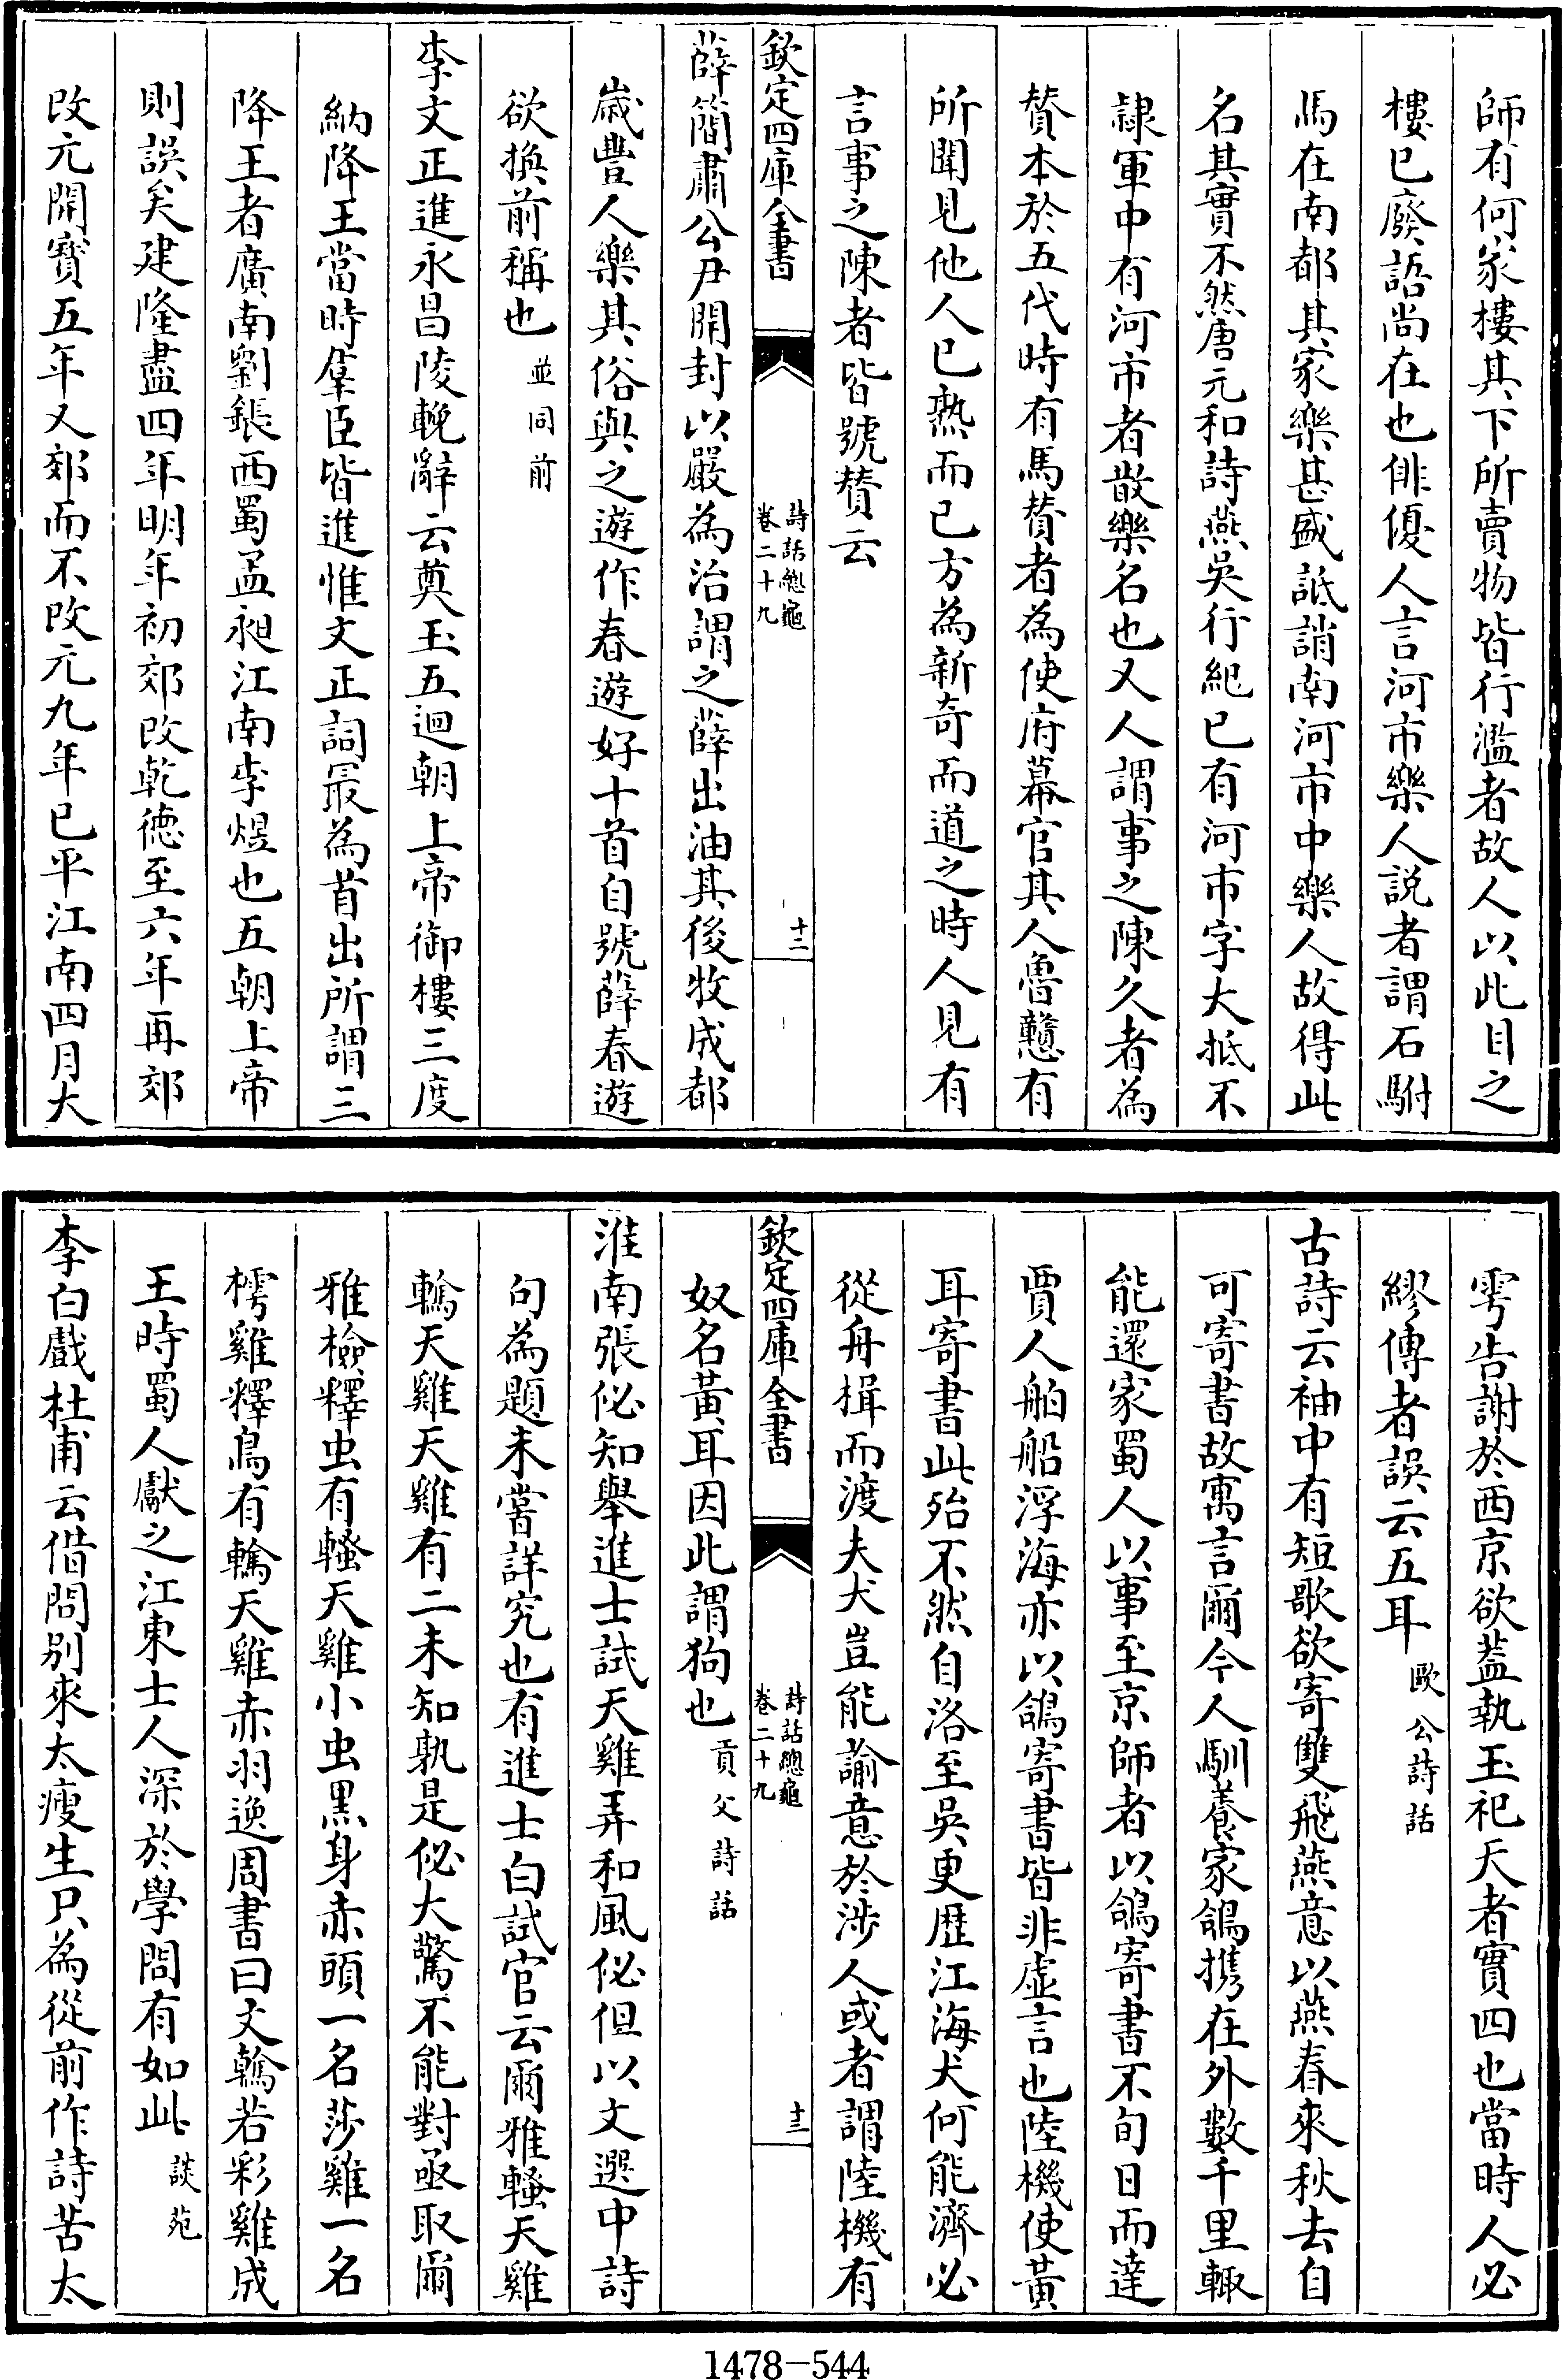 師有何家樓其下所賣物皆行濫者故人以此目之
樓已廢語尚在也俳優人言河市樂人説者謂石駙
馬在南都其家樂甚盛詆誚南河市中樂人故得此
名其實不然唐元和詩燕吳行紀已有河市字大抵不
隷軍中有河市者散樂名也又人謂事之陳久者為
賛本於五代時有馬賛者為使府幕官其人魯戇有
所聞見他人已熟而已方為新奇而道之時人見有
言事之陳者皆號賛云
欽定四庫全書
詩話總龜
卷二十九
十二
薛簡肅公尹開封以嚴為治謂之薛出油其後牧成都
歲豐人樂其俗與之遊作春遊好十首自號薛春遊
欲換前稱也並同前
李文正進永昌陵輓辭云奠玉五迴朝上帝御樓三度
納降王當時羣臣皆進惟文正詞最為首出所謂三
降王者廣南劉鋹西蜀孟昶江南李煜也五朝上帝
則誤矣建隆盡四年明年初郊改乾徳至六年再郊
改元開寳五年又郊而不改元九年已平江南四月大
雩告謝於西京欲葢執玉祀天者實四也當時人必
繆傳者誤云五耳歐公詩話
古詩云袖中有短歌欲寄雙飛燕意以燕春來秋去自
可寄書故寓言爾今人馴養家鴿攜在外數千里輙
能還家蜀人以事至京師者以鴿寄書不旬日而達
賈人舶船浮海亦以鴿寄書皆非虛言也陸機使黃
耳寄書此殆不然自洛至吳更歴江海犬何能濟必
從舟楫而渡夫犬豈能諭意於涉人或者謂陸機有
欽定四庫全書
詩話總龜
卷二十九
十三
奴名黃耳因此謂狗也貢父詩話
淮南張佖知舉進士試天雞弄和風佖但以文選中詩
句為題未嘗詳究也有進士白試官云爾雅螒天雞
鶾天雞天雞有二未知孰是佖大驚不能對亟取爾
雅檢釋虫有螒天雞小虫黒身赤頭一名莎雞一名
樗雞釋鳥有鶾天雞赤羽逸周書曰文鶾若彩雞成
王時蜀人獻之江東士人深於學問有如此談苑
李白戲杜甫云借問别來太瘦生只為從前作詩苦太
1478-544